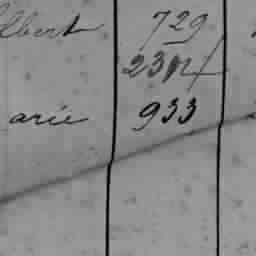 lbert 729
arie 933